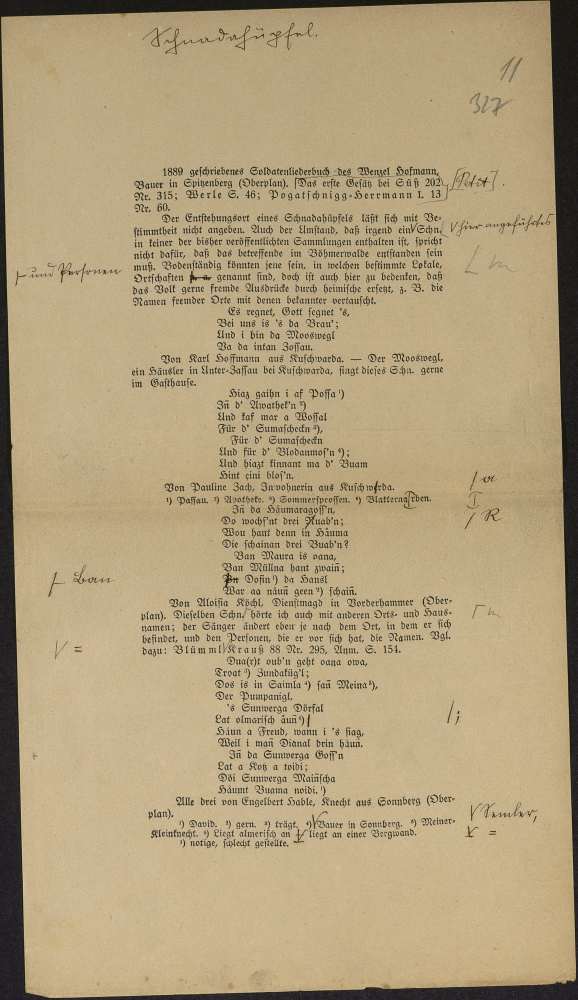 Schnadahüpfel.
11
327
1889 geschriebenes Soldatenliederbuch des Wenzel Hofmann,
Bauer in Spitzenberg (Oberplan). [Das erste Gesätz bei Süß 202
[Petit].
Nr. 315; Werle S. 46; Pogatschnigg-Herrmann I. 13
Nr. 60.
Der Entstehungsort eines Schnadahüpfels läßt sich mit Be-
stimmtheit nicht angeben. Auch der Umstand, daß irgend ein Schn.
hier angeführtes
in keiner der bisher veröffentlichten Sammlungen enthalten ist, spricht
nicht dafür, daß das betreffende im Böhmerwalde entstanden sein
muß. Bodenständig könnten jene sein, in welchen bestimmte Lokale,
und Personen
Ortschaften genannt sind, doch ist auch hier zu bedenken, daß
das Volk gerne fremde Ausdrücke durch heimische ersetzt, z. B. die
Namen fremder Orte mit denen bekannter vertauscht.
Es regnet, Gott segnet 's,
Bei uns is 's da Brau';
Und i bin da Mooswegl
Va da intan Zossau.
Von Karl Hoffmann aus Kuschwarda. — Der Mooswegl,
ein Häusler in Unter-Zassau bei Kuschwarda, singt dieses Schn. gerne
im Gasthause.
Hiaz gaihn i af Possa ¹)
In d' Awathek'n ²)
Und kaf mar a Wossal
Für d' Sumascheckn ³),
Für d' Sumascheckn
Und für d' Blodanmos'n ⁴);
Und hiazt kinnant ma d' Buam
Hint eini blos'n.
Von Pauline Zach, Inwohnerin aus Kuschwarda.
a
¹) Passau. ²) Apotheke. ³) Sommersprossen. ⁴) Blatternarben.
In da Häumaragoss'n,
Do wochs'nt drei Ruab'n;
R
Wou hant denn in Häuma
Die schainan drei Buab'n?
Ban Maura is oana,
Ban Müllna hant zwain;
Ban
Dosin ¹) da Hansl
War aa näun geen ²) schain.
Von Aloisia Köchl, Dienstmagd in Vorderhammer (Ober-
plan). Dieselben Schn. hörte ich auch mit anderen Orts- und Haus-
namen; der Sänger ändert eben je nach dem Ort, in dem er sich
befindet, und den Personen, die er vor sich hat, die Namen. Vgl.
dazu: Blümml Krauß 88 Nr. 295, Anm. S. 154.
=
Dua(r)t oub'n geht oana owa,
Troat ³) Zundaküg'l;
Dos is in Saimla ⁴) sañ Meina ⁵),
Der Pumpanigl.
's Sunwerga Dörfal
Lat olmarisch äun ⁶)
;
Häun a Freud, wann i 's siag,
Weil i mañ Dianal drin häun.
In da Sunwerga Goss'n
Lat a Kotz a toidi;
Döi Sunwerga Mainscha
Häumt Buama noidi. ⁷)
Alle drei von Engelbert Hable, Knecht aus Sonnberg (Ober-
plan).
¹) David. ²) gern. ³) trägt. ⁴) Bauer in Sonnberg. ⁵) Meiner-
Semler,
Kleinknecht. ⁶) Liegt almerisch an liegt an einer Bergwand.
=
⁷) notige, schlecht gestellte.